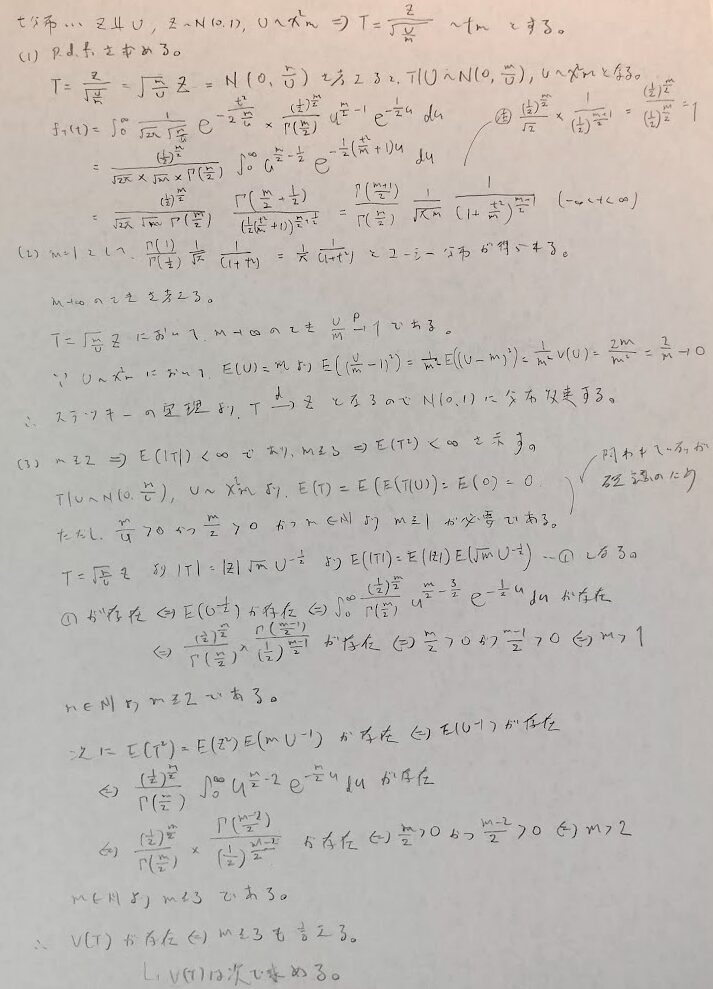 t分布… Z⫫U, Z~N(0,1), U~χ²m ⇒ T = Z/√(U/m) ~ tm とする。
(1) p.d.f. を求める。
T = Z/√(U/m) = √(m/U) Z = N(0, m/U) と考えると、T|U ~ N(0, m/U), U~χ²m となる。
fT(t) = ∫₀^∞ 1/(√2π √(m/u)) e^{-t²/(2 m/u)} × (1/2)^{m/2}/Γ(m/2) u^{m/2-1} e^{-1/2 u} du
(注) (1/2)^{m/2}/√2 × 1/(1/2)^{(m+1)/2} = (1/2)^{(m+1)/2}/(1/2)^{(m+1)/2} = 1
= (1/2)^{m/2}/(√2π × √m × Γ(m/2)) ∫₀^∞ u^{m/2-1/2} e^{-1/2(t²/m+1)u} du
= (1/2)^{m/2}/(√2π √m Γ(m/2)) Γ(m/2+1/2)/(1/2(t²/m+1))^{m/2+1/2} = Γ((m+1)/2)/Γ(m/2) 1/√πm 1/(1+t²/m)^{(m+1)/2} (-∞<t<∞)
(2) m=1として、Γ(1)/Γ(1/2) 1/√π 1/(1+t²) = 1/π 1/(1+t²) とコーシー分布が得られる。
m→∞のときを考える。
T = √(m/U) Z において、m→∞のとき U/m →p 1 である。
∵ U~χ²m において、E(U)=m より E((U/m-1)²) = 1/m² E((U-m)²) = 1/m² V(U) = 2m/m² = 2/m → 0
∴ スラツキーの定理より、T →d Z となるので N(0,1) に分布収束する。
(3) m≧2 ⇒ E(|T|)<∞ であり、m≧3 ⇒ E(T²)<∞ を示す。
T|U~N(0, m/U), U~χ²m より、E(T) = E(E(T|U)) = E(0) = 0
ただし、m/U>0 かつ m/2>0 かつ m∈N より m≧1 が必要である。
T = √(m/U) Z より |T| = |Z| √m U^{-1/2} より E(|T|) = E(|Z|) E(√m U^{-1/2}) … ① となる。
①が存在 ⇔ E(U^{-1/2}) が存在 ⇔ ∫₀^∞ (1/2)^{m/2}/Γ(m/2) u^{m/2-3/2} e^{-1/2 u} du が存在
⇔ (1/2)^{m/2}/Γ(m/2) × Γ((m-1)/2)/(1/2)^{(m-1)/2} が存在 ⇔ m/2>0 かつ (m-1)/2>0 ⇔ m>1
m∈N より m≧2 である。
次に E(T²) = E(Z²) E(m U^{-1}) が存在 ⇔ E(U^{-1}) が存在
⇔ (1/2)^{m/2}/Γ(m/2) ∫₀^∞ u^{m/2-2} e^{-m/2 u} du が存在
⇔ (1/2)^{m/2}/Γ(m/2) × Γ((m-2)/2)/(1/2)^{(m-2)/2} が存在 ⇔ m/2>0 かつ (m-2)/2>0 ⇔ m>2
m∈N より m≧3 である。
∴ V(T) が存在 ⇔ m≧3 も言える。
↳ V(T)は次で求める。